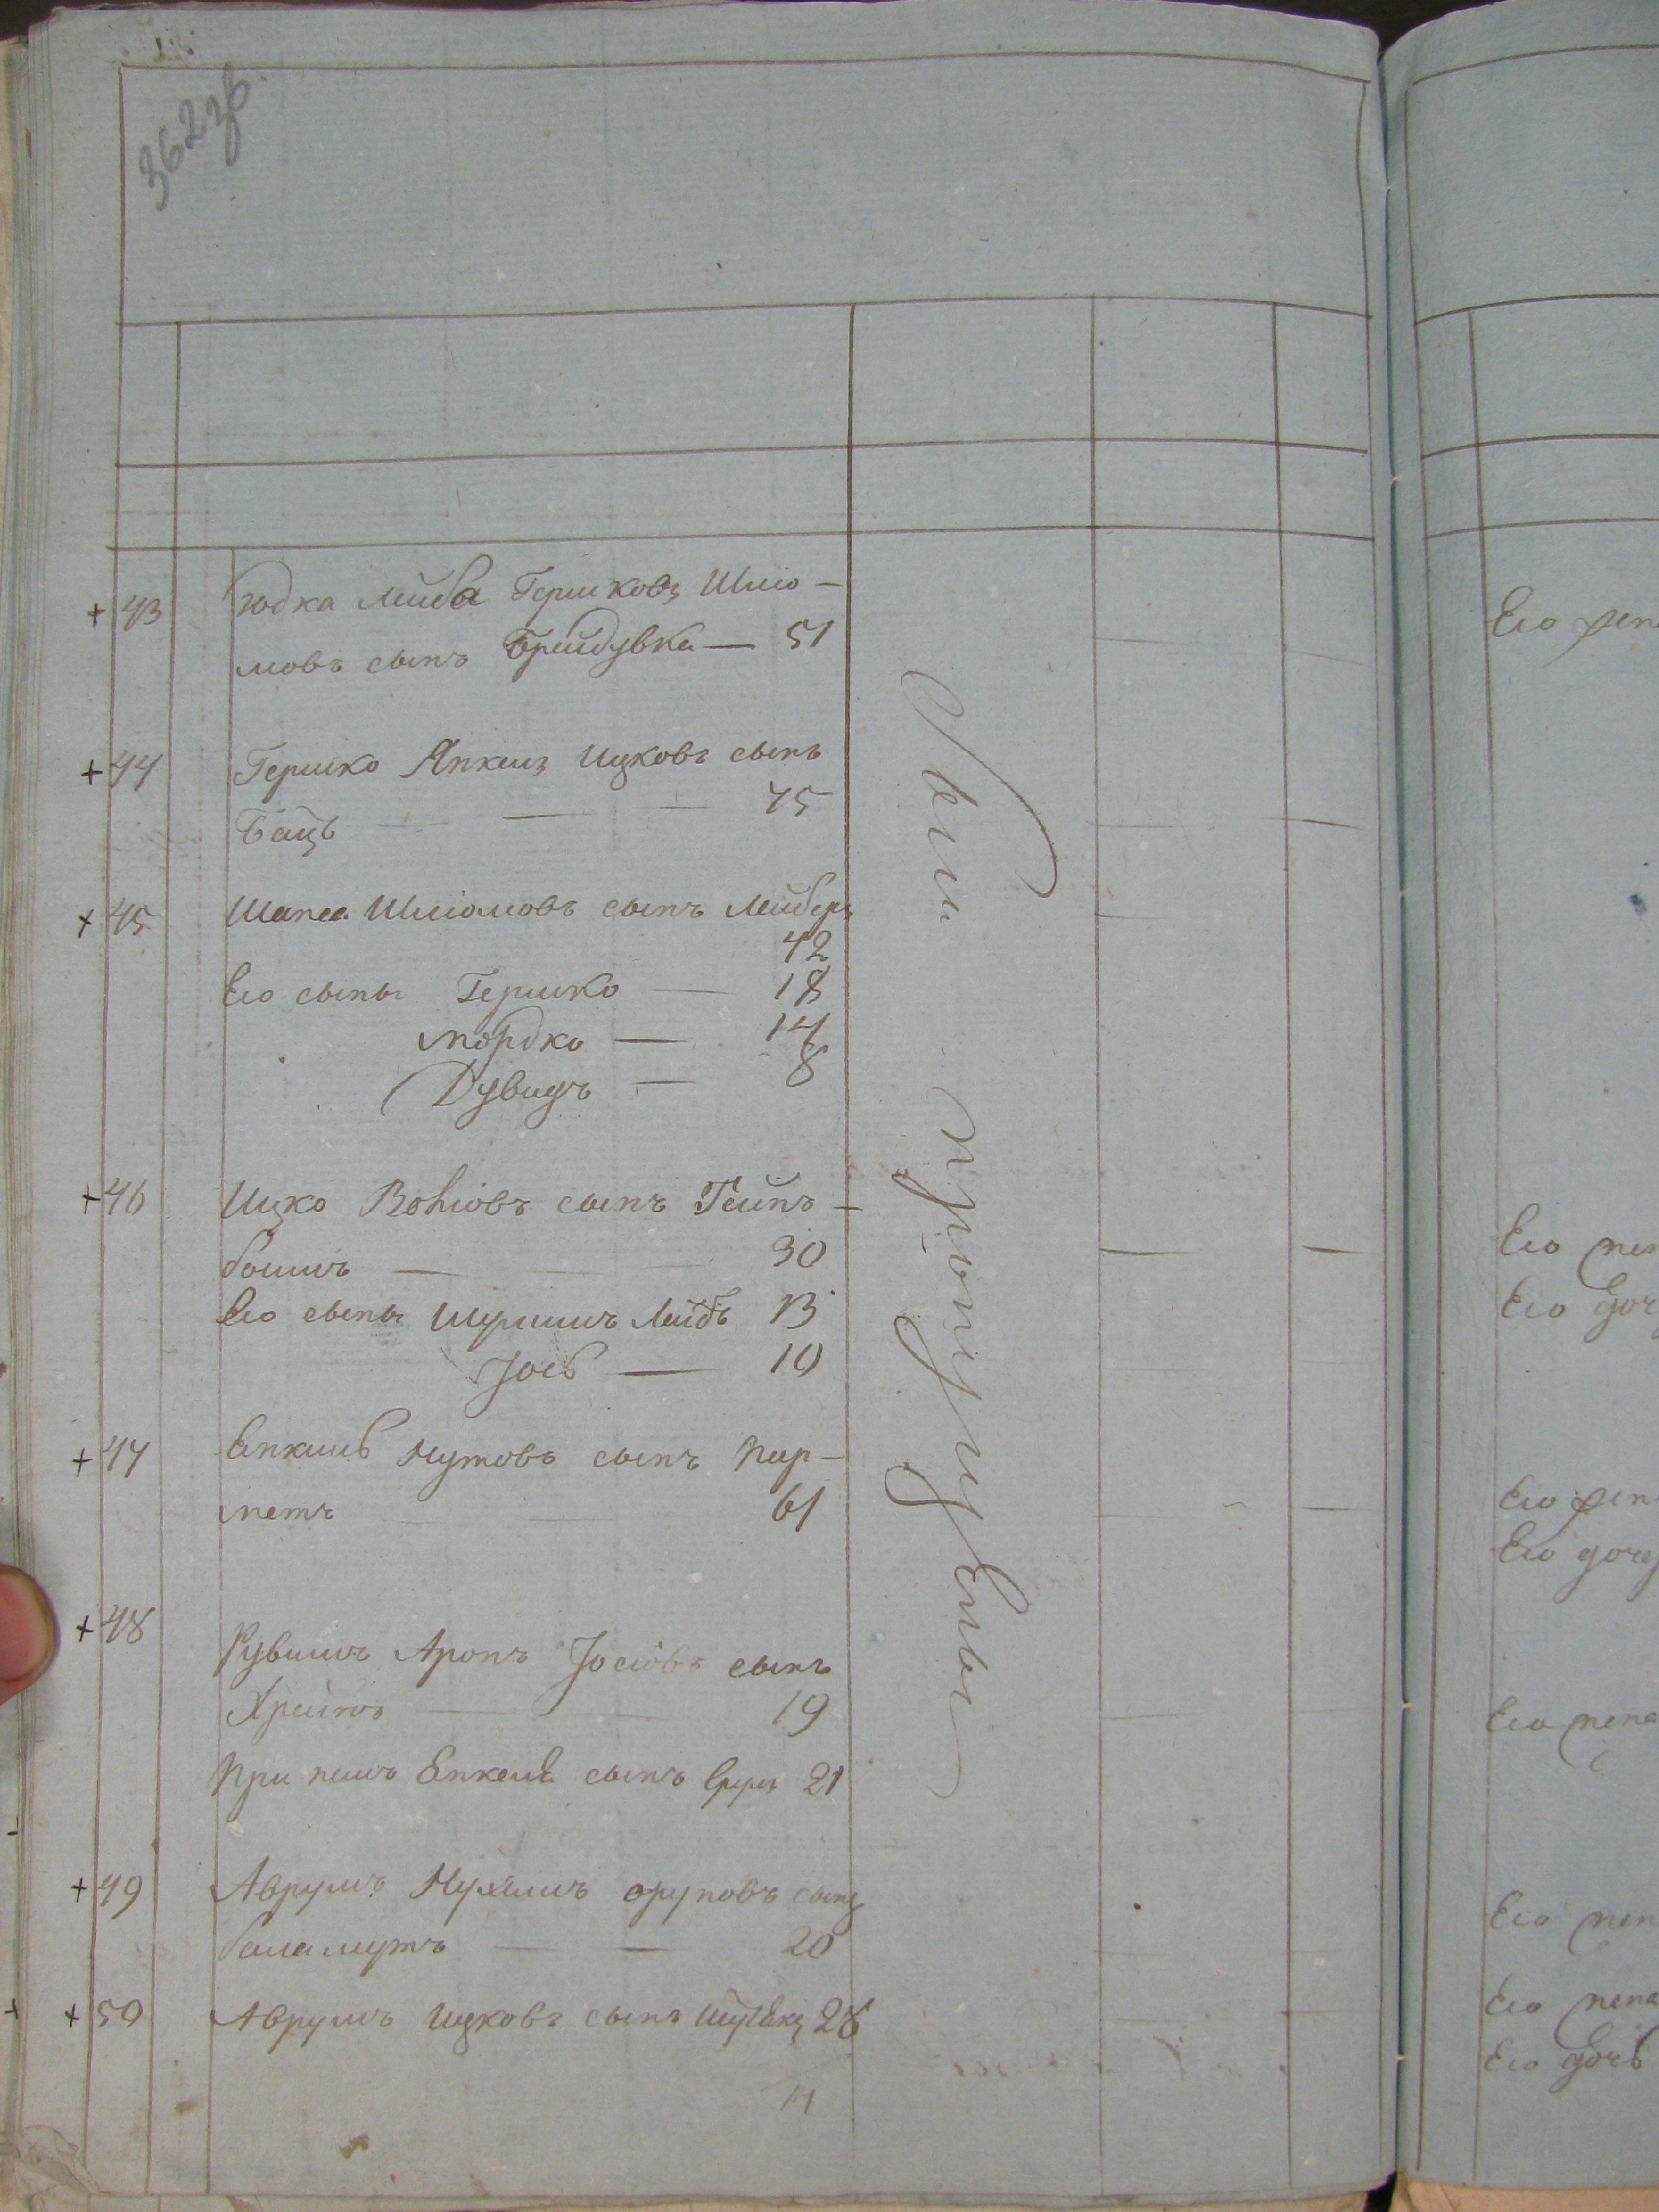 362 зв.
+ 43 Юдка Лейба Гершковъ Шлио-
мовъ сынъ Брайдувка — 51
+ 44 Гершко Янкель Ицковъ сынъ
Бацъ — — — 45
+ 45 Шапса Шлиомовъ сынъ Лейберъ
42
Его сыны Гершко — 18
Мордко — 14
Дувидъ — 8
+ 46 Ицко Вольковъ сынъ Гейнъ-
боимъ — 30
Его сыны Шулимъ Лейбъ 13
Іось — 10
+ 47 Енкиль Нутовъ сынъ Пар-
нетъ 61
+ 48
Рувимъ Аронъ Іосіовъ сынъ
19
При немъ Енкель сынъ 21
+ 49 Аврумъ Нухимъ сынъ
баламутъ — — 20
+ 50 Аврумъ Ицковъ сынъ 28
14
Были пропущены
Его
Его жен
Его доч
Его жен
Его доч
Его жена
Его жен
Его жена
Его дочь